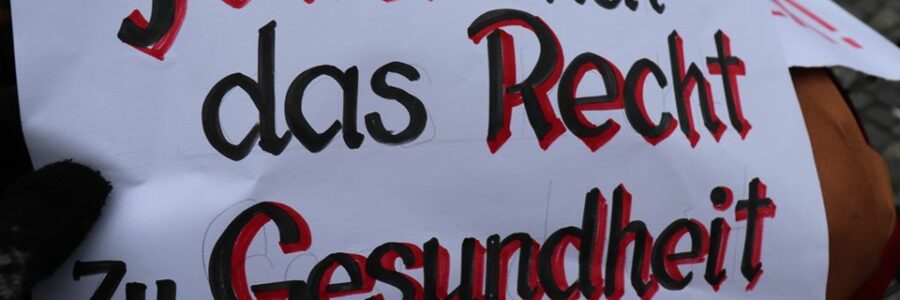 das Recht
zu Gesundheit